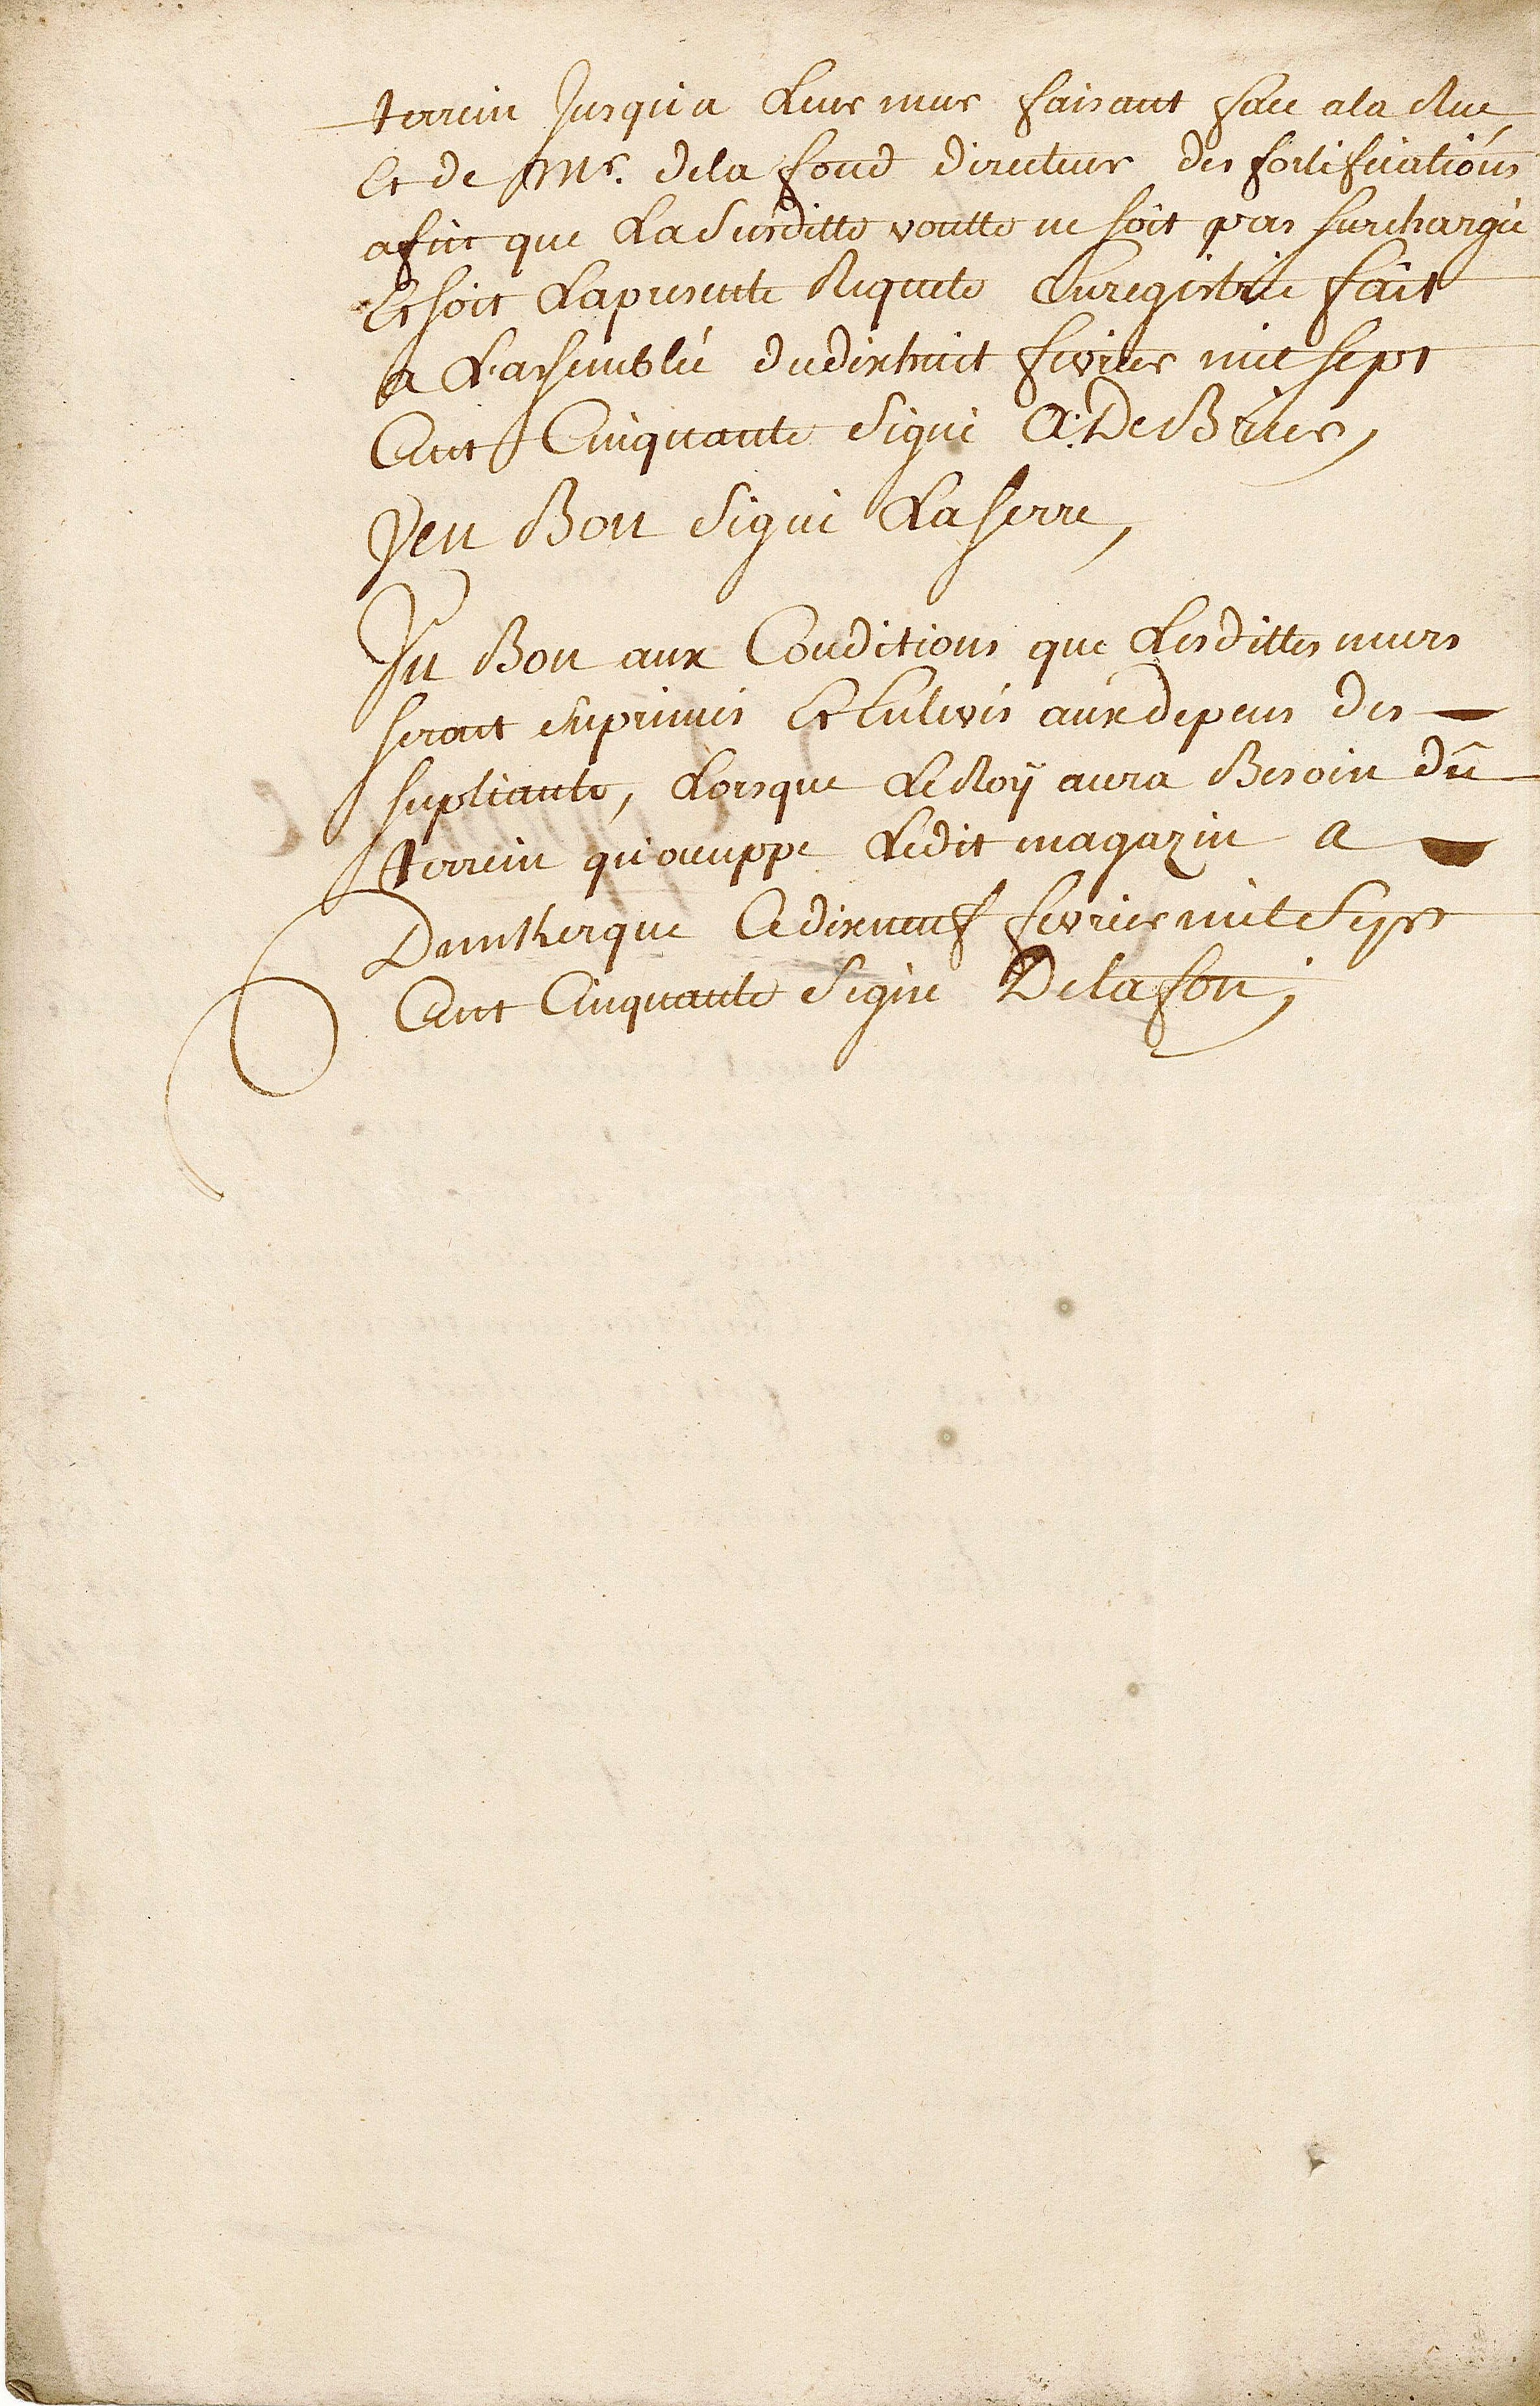 terrein Jusqu'a Leur mur faisant face a la Rue
Et de Mr. dela fond directeur des fortifications
afin que La Susditte voutte ne soit pas surchargée
Et soit La presente Requete Enregistrée fait
a L'assemblée du dixhuit fevrier mil sept
Cent Cinquante Signé A: De Brier,
Veu Bon Signé La Serre,
Vu Bon aux Conditions que Lesdittes murs
seront suprimés Et Enlevés aux depens des
supliants, Lorsque Le Roÿ aura Besoin du
terrein qu'ocuppe Ledit magazin a
Dunkerque Ce dixneuf fevrier mil Sept
Cent Cinquante Signé De la fon,